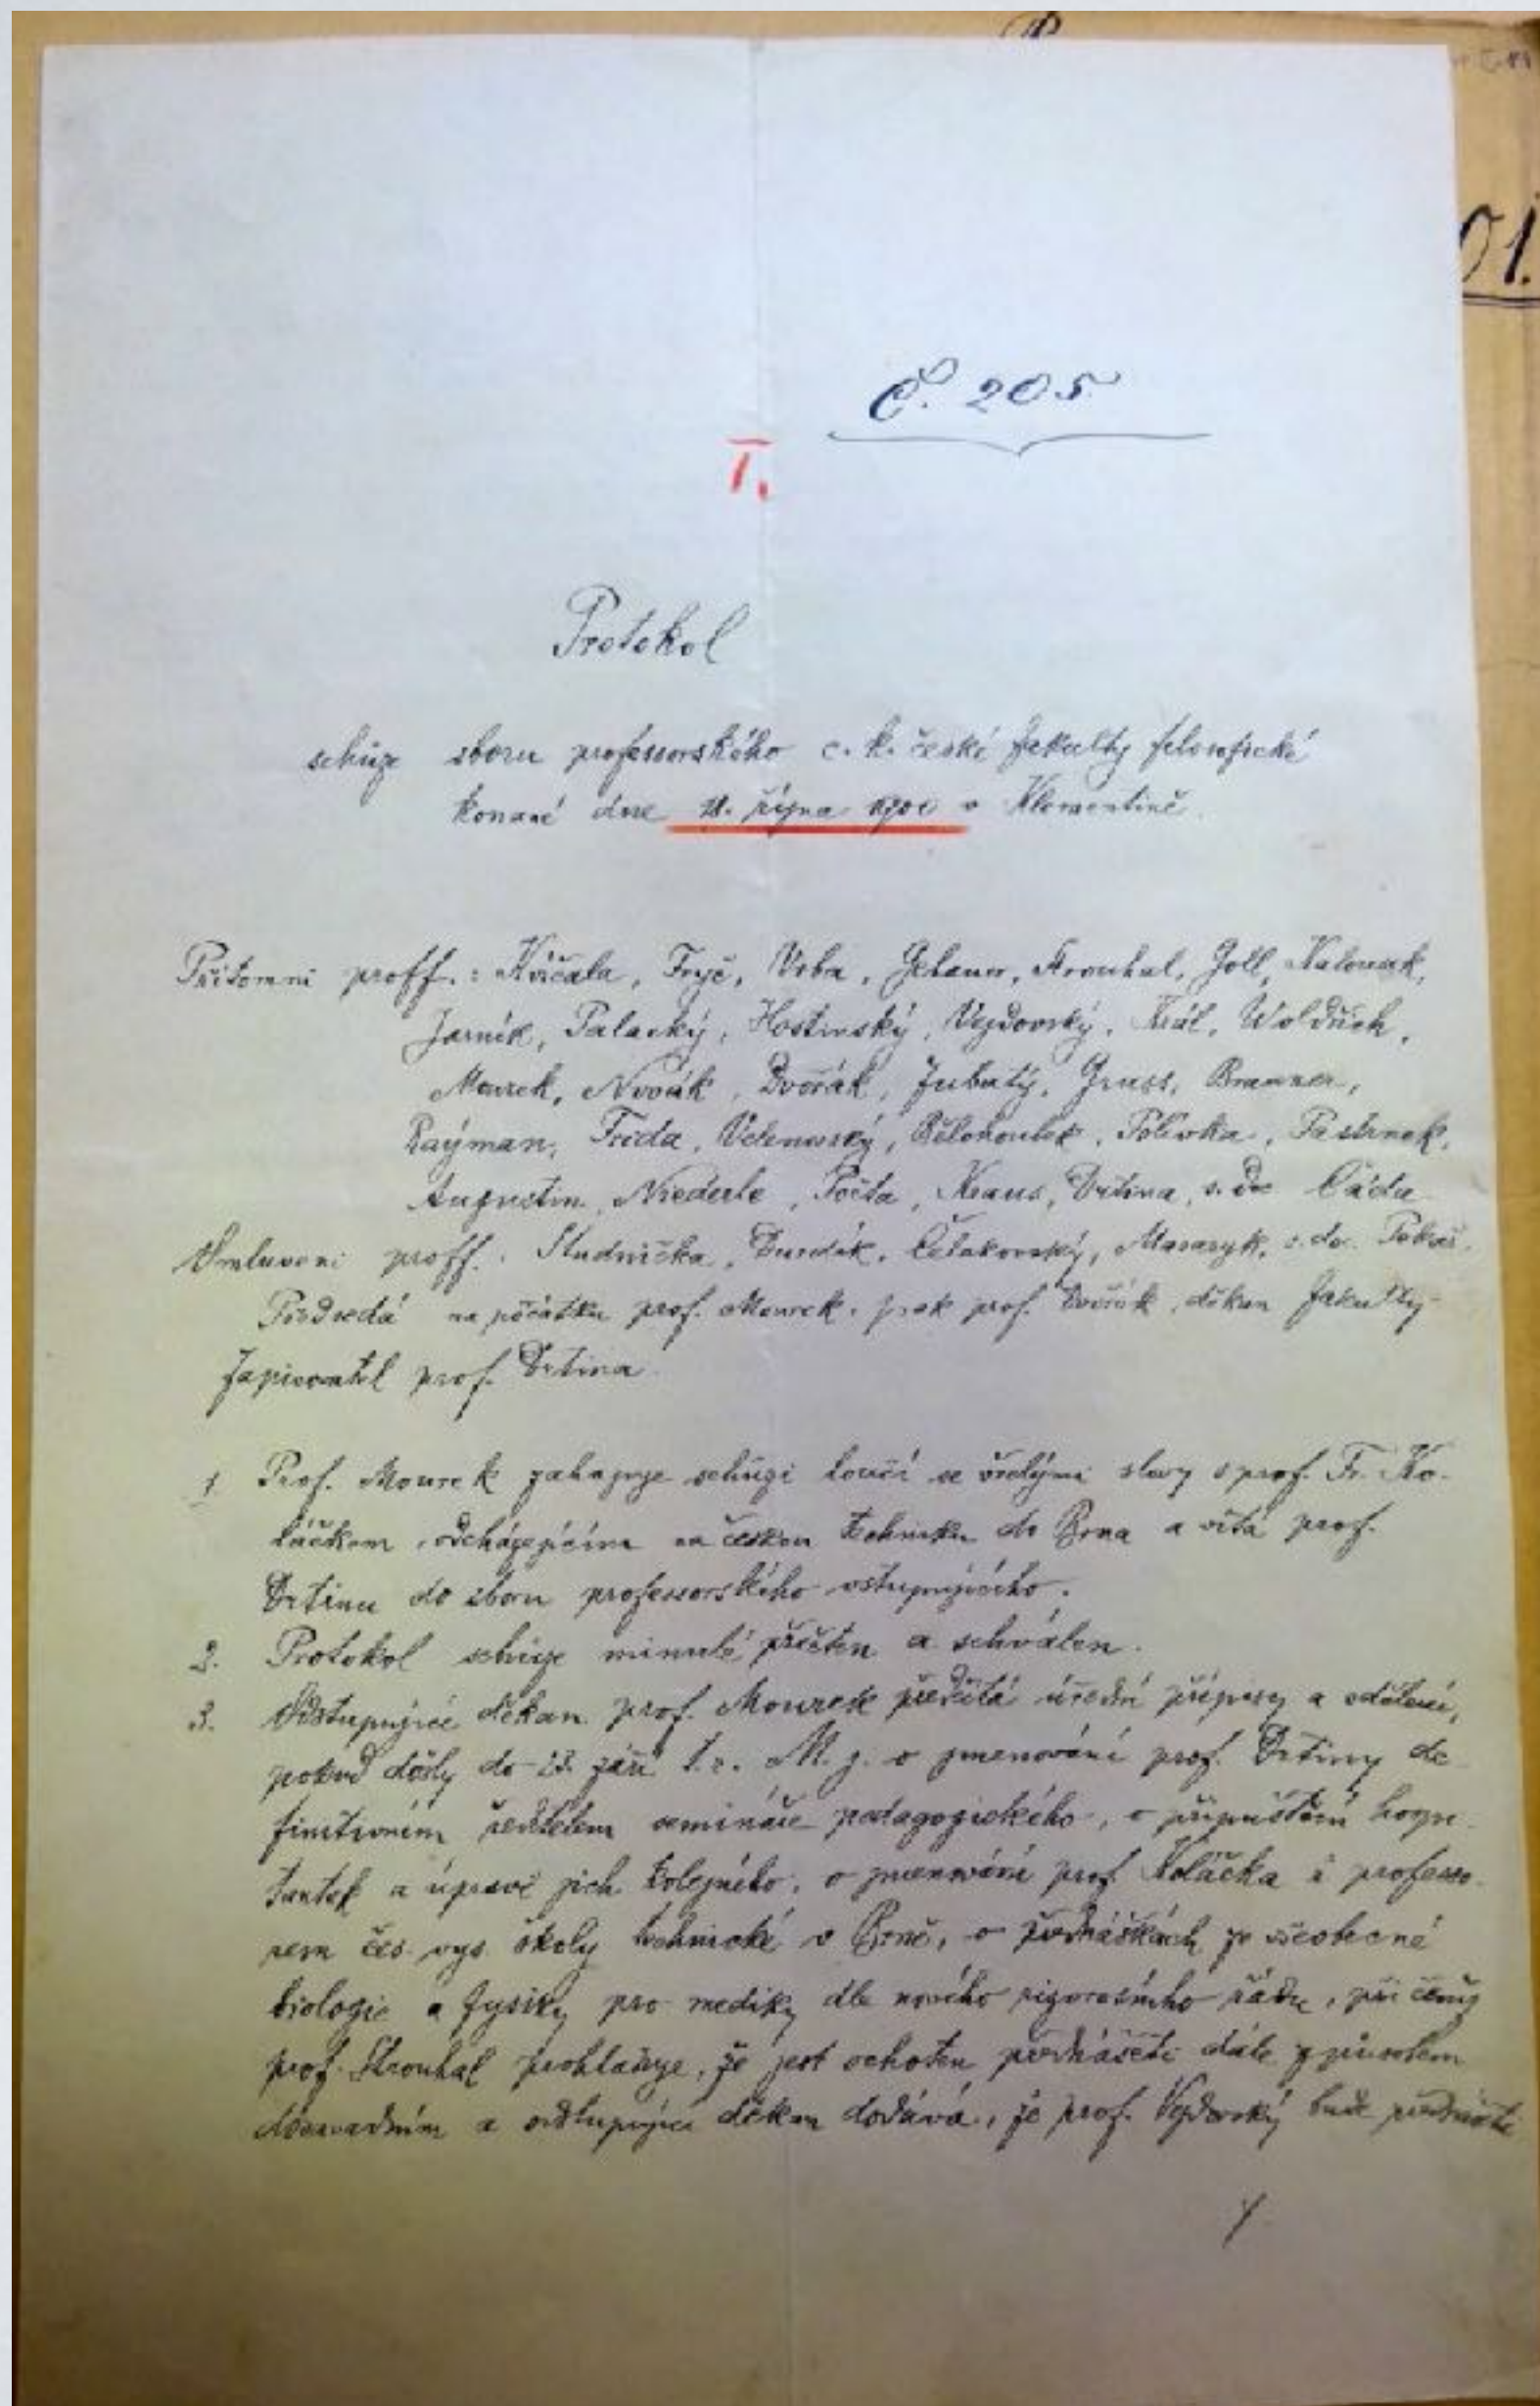 01.
Č. 205
I.
Protokol
schůze sboru professorského c. k. české fakulty filosofické
konané dne října v Klementině.
Přítomni proff.: Kvíčala, Fryč, Vrba, Gebauer, Strouhal, Goll, Kalousek,
Jarník, Palacký, Hostinský, Vejdovský, Král, Woldřich,
Mourek, Novák, Dvořák, Zubatý, Gruss, Brauner,
Raýman, Frída, Velenovský, Bělohoubek, Polívka, Pastrnek,
Augustin, Niederle, Počta, Kraus, Drtina, s. doc. Čáda
Omluveni proff.: Studnička, Durdík, Čelakovský, Masaryk, s. do.
Předsedá na počátku prof. Mourek, pak prof. Dvořák, děkan fakulty
Zapisovatel prof. Drtina.
1 Prof. Mourek zahajuje schůzi loučí se vřelými slovy s prof. Fr. Ko-
láčkem, odcházejícím na českou techniku do Brna a vítá prof.
Drtinu do sboru professorského vstupujícího.
2. Protokol schůze minulé přečten a schválen.
3. Odstupující děkan prof. Mourek předčítá úřední přípisy a sdělení,
pokud došly do září t. r. M. j. o jmenování prof. Drtiny de-
finitivním ředitelem semináře pedagogického, o připuštění hospi-
tantek a úpravě jich kolejného, o jmenování prof. Koláčka professo-
rem čes. vys. školy technické v Brně, o přednáškách ze všeobecné
biologie a fysiky pro mediky dle nového rigorosního řádu, při čemž
prof. Strouhal prohlašuje, že jest ochoten přednášeti dále způsobem
dosavadním a odstupující děkan dodává, že prof. Vejdovský bude přednášeti